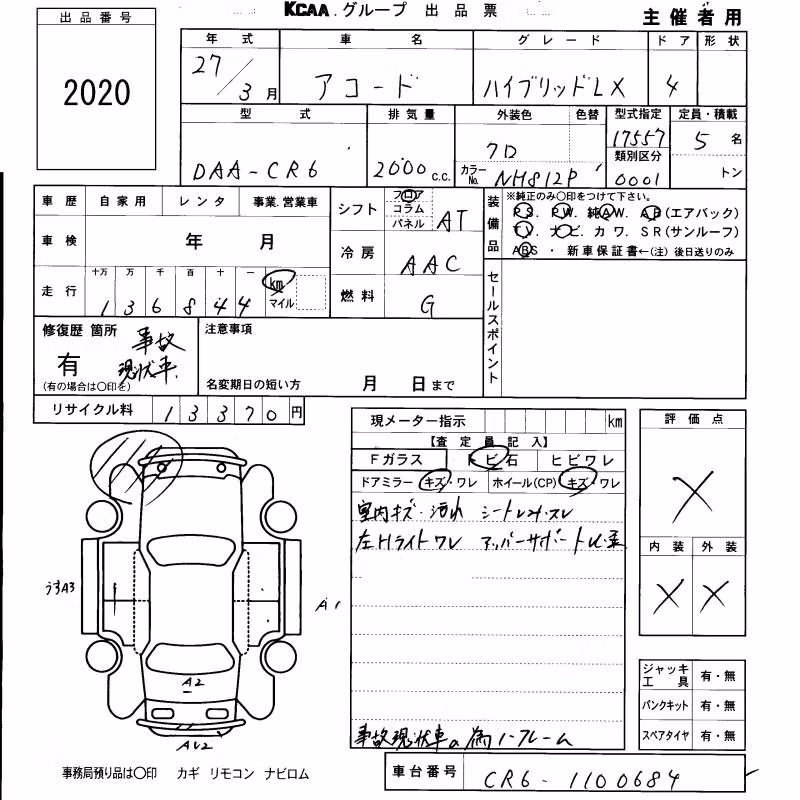 出品番号
KCAA.グループ 出品票
主催者用
2020
年式 車名 グレード ドア 形状
27/3月 アコード ハイブリッドLX 4
型式 排気量 外装色 色替 型式指定 定員・積載
DAA-CR6 2000c.c. クロ 17557 5名
カラーNo. NH812P 類別区分 0001 トン
車歴 自家用 レンタ 事業.営業車
車検 年 月
走行 十万 万 千 百 十 一
136844 km マイル
シフト フロア コラム パネル AT
冷房 AAC
燃料 G
装備品
※純正のみ〇印をつけて下さい。
P S. P W. 純A W. A B(エアバック)
T V. ナビ カワ. S R(サンルーフ)
ABS ・ 新車保証書←(注)後日送りのみ
セールスポイント
修復歴 箇所 事故現状車.
有
(有の場合は〇印を)
注意事項
名変期日の短い方 月 日まで
リサイクル料 13370円
現メーター指示 km
【査定員記入】
Fガラス トビ石 ヒビワレ
ドアミラー キズ・ワレ ホイール(CP) キズ・ワレ
室内キズ・汚れ シートスレ
左Hライトワレ アッパーサポート
事故現状車の為ノークレーム
評価点
X
内装 外装
X X
うすA3
A1
A2
ジャッキ工具 有・無
パンクキット 有・無
スペアタイヤ 有・無
事務局預り品は〇印 カギ リモコン ナビロム
車台番号 CR6-1100684